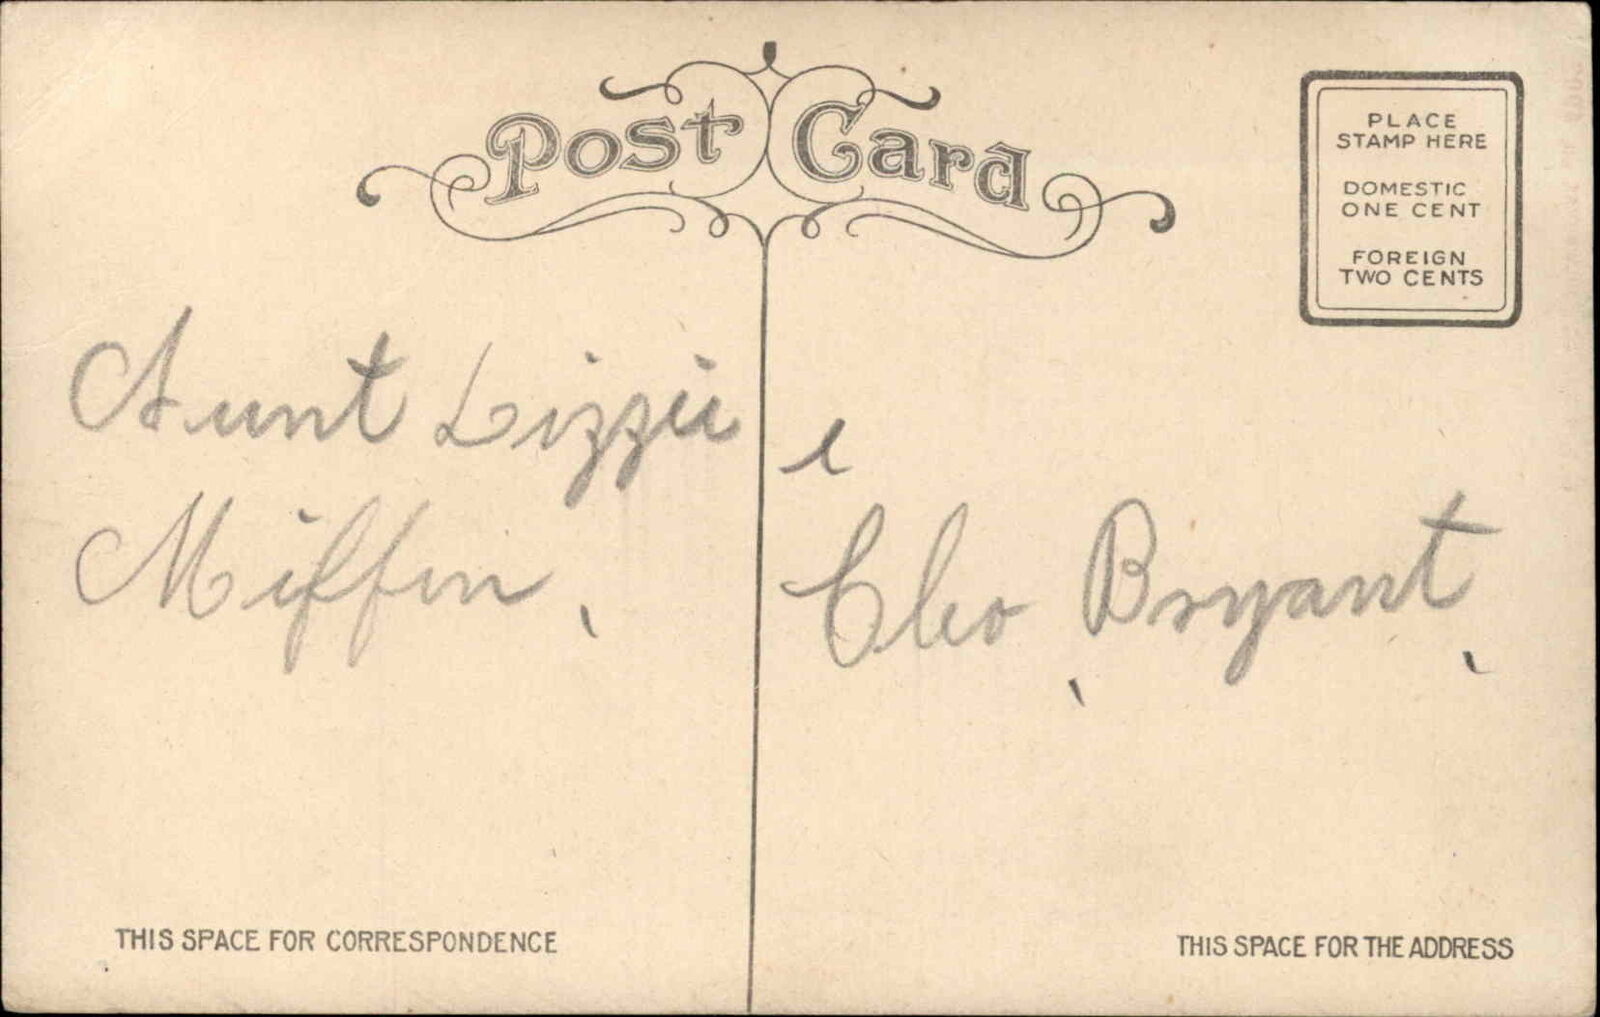 Post Card
PLACE
STAMP HERE
DOMESTIC
ONE CENT
FOREIGN
TWO CENTS
Aunt Lizzie
Miffin.
Cleo Bryant.
THIS SPACE FOR CORRESPONDENCE
THIS SPACE FOR THE ADDRESS